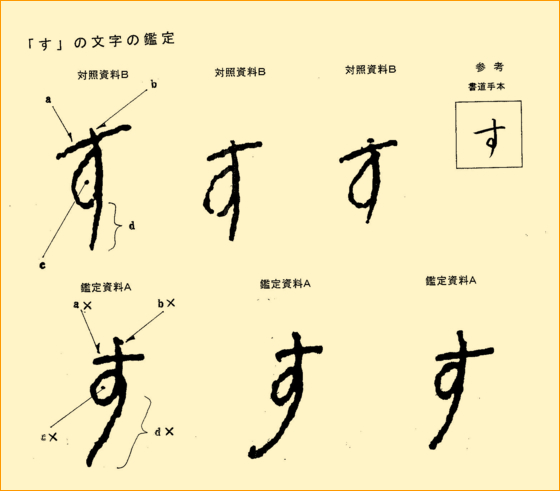 「す」の文字の鑑定
対照資料B 対照資料B 対照資料B 参考
書道手本
a b
す す す す
d
c
鑑定資料A 鑑定資料A 鑑定資料A
a× b×
す す す
c× d×